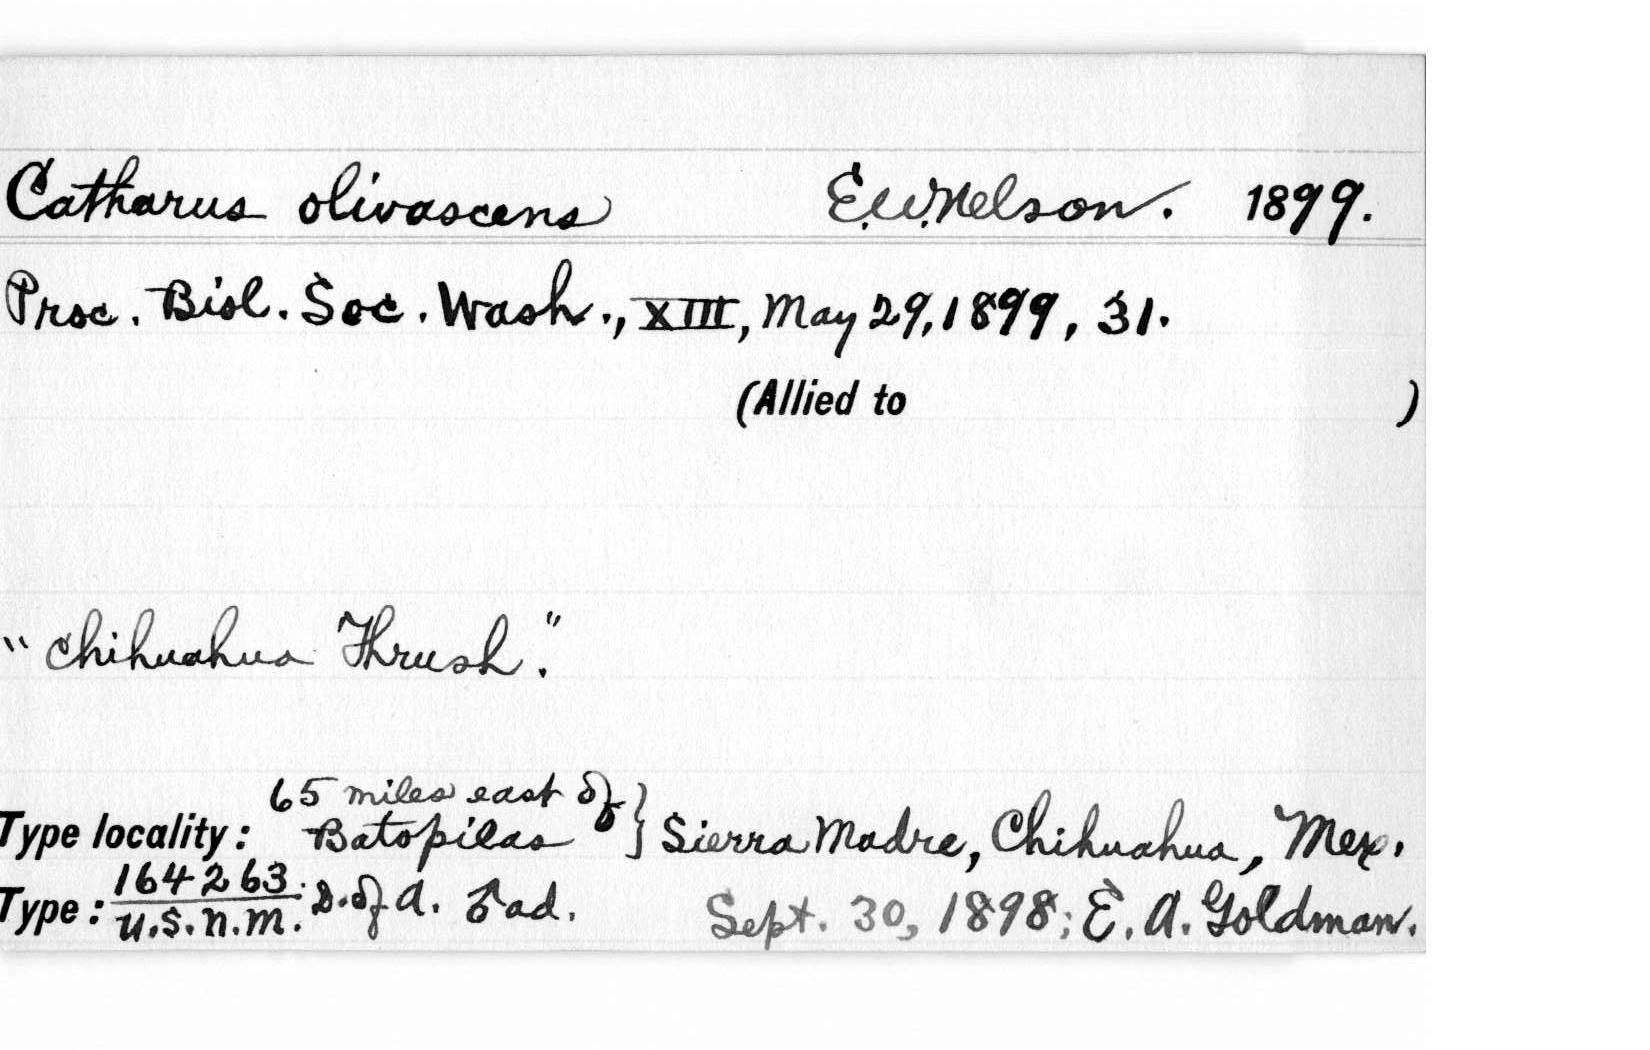 Catharus olivascens E.W. Nelson. 1899.
Proc. Biol. Soc. Wash., XIII, May 29, 1899, 31.
(Allied to )
"Chihuahua Thrush."
65 miles east of
Type locality: Batopilas } Sierra Madre, Chihuahua, Mex.
164263.
Type: U.S.N.M. D. of A. ♂ ad. Sept. 30, 1898; E. A. Goldman.